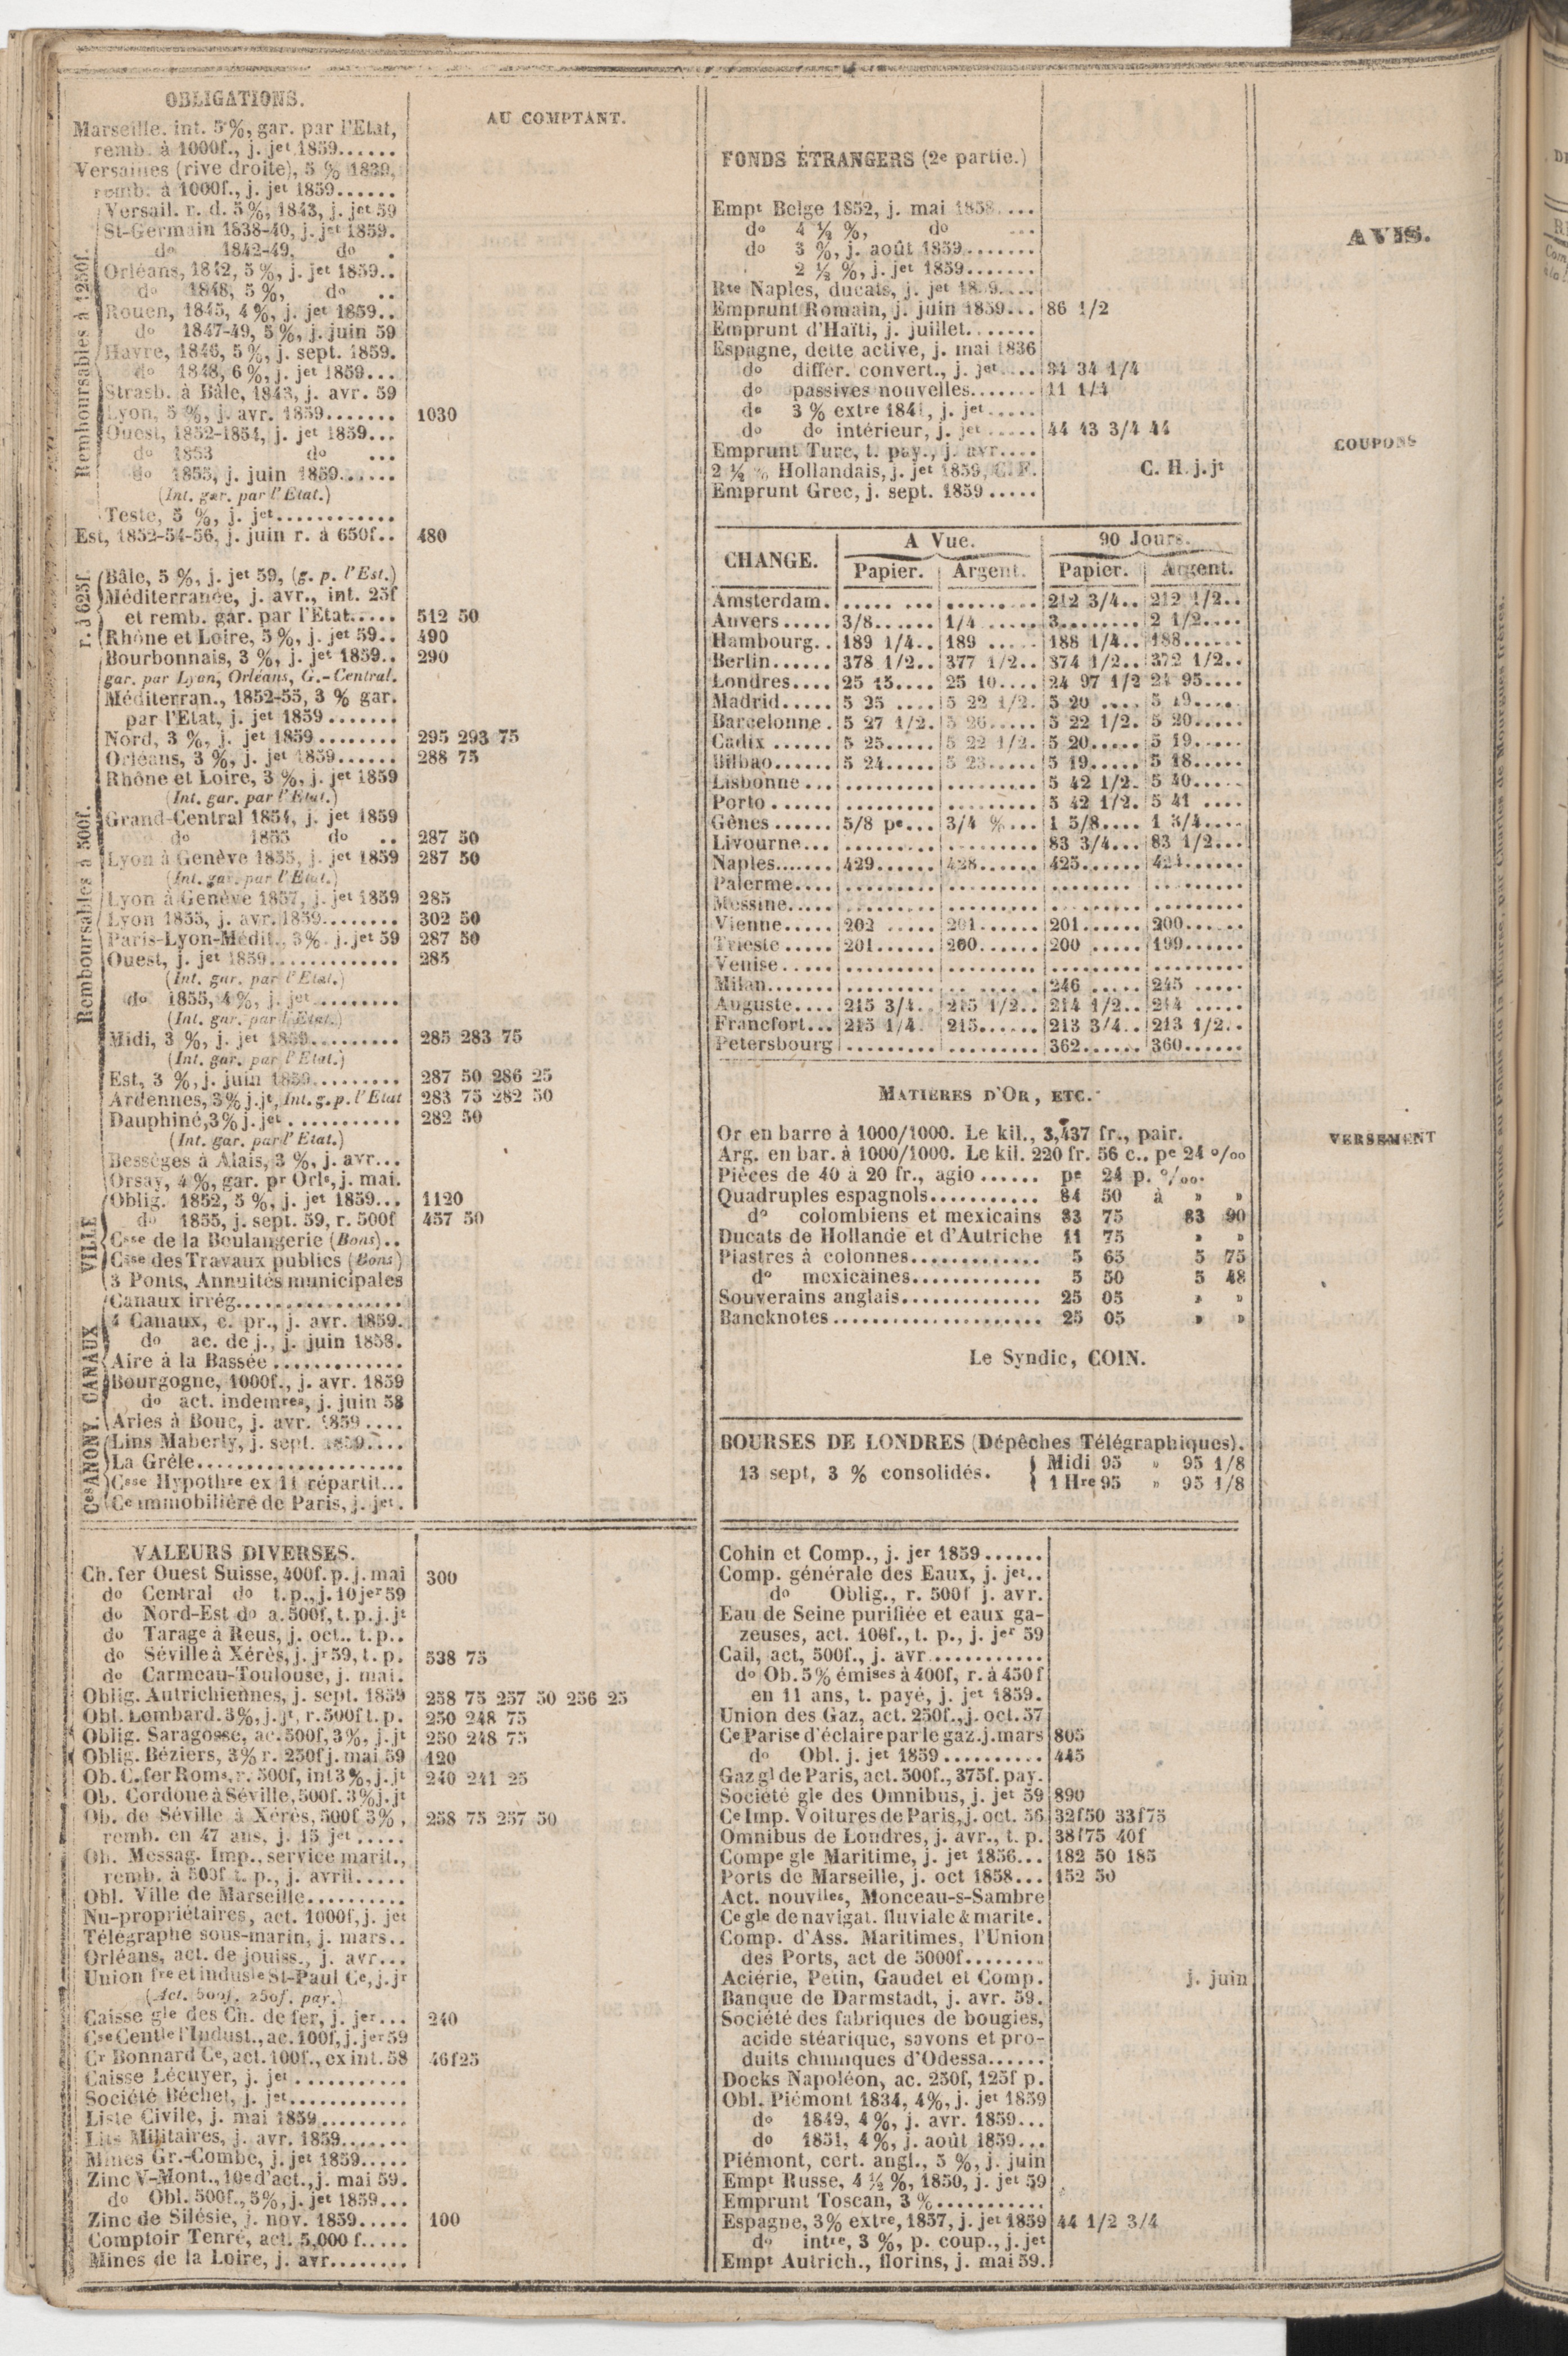 OBLIGATIONS.
AU COMPTANT.
Marseille. int. 5%, gar. par l'Etat,
remb. à 1000f., j. jet 1859......
Versailles (rive droite), 5 % 1839,
remb. à 1000f., j. jet 1859......
Remboursables à 1250f.
Versail. r. d. 5%, 1843, j. jet 59
St-Germain 1838-40, j. jet 1859.
do 1842-49, do .
Orléans, 1842, 5%, j. jet 1859..
do 1848, 5%, do ..
Rouen, 1845, 4%, j. jet 1859..
do 1847-49, 5%, j. juin 59
Havre, 1846, 5%, j. sept. 1859.
do 1848, 6%, j. jet 1859...
Strasb. à Bâle, 1843, j. avr. 59
Lyon, 5 %, j. avr. 1859....... 1030
Ouest, 1852-1854, j. jet 1859...
do 1853 do ...
do 1855, j. juin 1859......
(Int. gar. par l'Etat.)
Teste, 5 %, j. jet............
Est, 1852-54-56, j. juin r. à 650f.. 480
r. à 625f.
Bâle, 5 %, j. jet 59, (g. p. l'Est.)
Méditerranée, j. avr., int. 25f
et remb. gar. par l'Etat..... 512 50
Rhône et Loire, 5%, j. jet 59.. 490
Remboursables à 500f.
Bourbonnais, 3 %, j. jet 1859.. 290
gar. par Lyon, Orléans, G.-Central.
Méditerran., 1852-55, 3 % gar.
par l'Etat, j. jet 1859.......
Nord, 3 %, j. jet 1859........ 295 293 75
Orléans, 3 %, j. jet 1859...... 288 75
Rhône et Loire, 3 %, j. jet 1859
(Int. gar. par l'Etat.)
Grand-Central 1854, j. jet 1859
do 1855 do .. 287 50
Lyon à Genève 1855, j. jet 1859 287 50
(Int. gar. par l'Etat.)
Lyon à Genève 1857, j. jet 1859 285
Lyon 1855, j. avr. 1859........ 302 50
Paris-Lyon-Médit., 3% j. jet 59 287 50
Ouest, j. jet 1859............. 285
(Int. gar. par l'Etat.)
do 1855, 4 %, j. jet.........
(Int. gar. par l'Etat.)
Midi, 3 %, j. jet 1859......... 285 283 75
(Int. gar. par l'Etat.)
Est, 3 %, j. juin 1859......... 287 50 286 25
Ardennes, 3% j. jt, Int. g. p. l'Etat 283 75 282 50
Dauphiné, 3% j. jet........... 282 50
(Int. gar. par l'Etat.)
Bessèges à Alais, 3 %, j. avr...
Orsay, 4 %, gar. pr Orls, j. mai.
VILLE
Oblig. 1852, 5 %, j. jet 1859... 1120
do 1855, j. sept. 59, r. 500f 457 50
Csse de la Boulangerie (Bons)..
Csse des Travaux publics (Bons)
3 Ponts, Annuités municipales
CANAUX
Canaux irrég.................
4 Canaux, c. pr., j. avr. 1859.
do ac. de j., j. juin 1858.
Aire à la Bassée.............
Bourgogne, 1000f., j. avr. 1859
do act. indemres, j. juin 58
Arles à Bouc, j. avr. 1859....
Ces ANONY.
Lins Maberly, j. sept. 1859....
La Grêle.....................
Csse Hypothre ex 11 répartit...
Ce immobilière de Paris, j. jet.
VALEURS DIVERSES.
Ch. fer Ouest Suisse, 400f. p. j. mai 300
do Central do t. p., j. 10 jer 59
do Nord-Est do a. 500f, t. p. j. jt
do Tarage à Reus, j. oct.. t. p..
do Séville à Xérès, j. jr 59, t. p. 538 75
do Carmeau-Toulouse, j. mai.
Oblig. Autrichiennes, j. sept. 1859 258 75 257 50 256 25
Obl. Lombard. 3%, j. jt, r. 500f t. p. 250 248 75
Oblig. Saragosse, ac. 500f, 3%, j. jt 250 248 75
Oblig. Béziers, 3% r. 250f j. mai 59 120
Ob. C. fer Roms, r. 500f, int 3%, j. jt 240 241 25
Ob. Cordoue à Séville, 500f. 3% j. jt
Ob. de Séville à Xérès, 500f 3%, 258 75 257 50
remb. en 47 ans, j. 15 jet.....
Ob. Messag. Imp., service marit.,
remb. à 500f t. p., j. avril.....
Obl. Ville de Marseille.........
Nu-propriétaires, act. 1000f, j. jet
Télégraphe sous-marin, j. mars..
Orléans, act. de jouiss., j. avr...
Union fre et indusle St-Paul Ce, j. jr
(Act. 500f. 250f. pay.)
Caisse gle des Ch. de fer, j. jer... 240
Cse Centle l'Indust., ac. 100f, j. jer 59
Cr Bonnard Ce, act. 100f., ex int. 58 46f25
Caisse Lécuyer, j. jet...........
Société Béchet, j. jet............
Liste Civile, j. mai 1859.........
Lits Militaires, j. avr. 1859.......
Mines Gr.-Combe, j. jet 1859.....
Zinc V-Mont., 10e d'act., j. mai 59.
do Obl. 500f., 5%, j. jet 1859...
Zinc de Silésie, j. nov. 1859..... 100
Comptoir Tenré, act. 5,000 f.....
Mines de la Loire, j. avr........
FONDS ÉTRANGERS (2e partie.)
Empt Belge 1852, j. mai 1858....
do 4 ½ %, do ...
do 3 %, j. août 1859.......
2 ½ %, j. jet 1859.......
Rte Naples, ducats, j. jet 1859....
Emprunt Romain, j. juin 1859... 86 1/2
Emprunt d'Haïti, j. juillet.......
Espagne, dette active, j. mai 1836
do différ. convert., j. jet.... 34 34 1/4
do passives nouvelles....... 11 1/4
do 3 % extre 1841, j. jet.....
do do intérieur, j. jet..... 44 43 3/4 44
Emprunt Turc, t. pay., j. avr....
2 ½ % Hollandais, j. jet 1859, C. F. C. H. j. jt
Emprunt Grec, j. sept. 1859.....
CHANGE. A Vue. 90 Jours.
Papier. Argent. Papier. Argent.
Amsterdam. ..... ... ......... 212 3/4.. 212 1/2..
Anvers..... 3/8...... 1/4 ..... 3......... 2 1/2....
Hambourg.. 189 1/4.. 189 ..... 188 1/4.. 188......
Berlin...... 378 1/2.. 377 1/2.. 374 1/2.. 372 1/2..
Londres.... 25 15.... 25 10.... 24 97 1/2 24 95....
Madrid..... 5 25 .... 5 22 1/2. 5 20 .... 5 19....
Barcelonne. 5 27 1/2. 5 26..... 5 22 1/2. 5 20.....
Cadix ...... 5 25..... 5 22 1/2. 5 20..... 5 19.....
Bilbao...... 5 24..... 5 23..... 5 19..... 5 18.....
Lisbonne... ......... ......... 5 42 1/2. 5 40.....
Porto...... ......... ......... 5 42 1/2. 5 41 ....
Gênes...... 5/8 pe... 3/4 %... 1 5/8.... 1 3/4....
Livourne... ......... ......... 83 3/4... 83 1/2...
Naples...... 429...... 428...... 425...... 424......
Palerme.... ......... ......... ........ .........
Messine..... ......... ......... ......... .........
Vienne..... 202 ..... 201...... 201...... 200......
Trieste..... 201...... 200...... 200 ..... 199......
Venise..... ......... ......... ......... .........
Milan....... ......... ......... 246 ..... 245 .....
Auguste.... 215 3/4.. 215 1/2.. 214 1/2.. 214 .....
Francfort... 215 1/4. 215...... 213 3/4.. 213 1/2..
Petersbourg ......... ......... 362...... 360......
MATIERES D'OR, ETC.
Or en barre à 1000/1000. Le kil., 3,437 fr., pair.
Arg. en bar. à 1000/1000. Le kil. 220 fr. 56 c., pe 24 o/oo
Pièces de 40 à 20 fr., agio...... pe 24 p. o/oo.
Quadruples espagnols........... 84 50 à » »
do colombiens et mexicains 83 75 83 90
Ducats de Hollande et d'Autriche 11 75 » »
Piastres à colonnes............. 5 65 5 75
do mexicaines............. 5 50 5 48
Souverains anglais.............. 25 05 » »
Bancknotes..................... 25 05 » »
Le Syndic, COIN.
BOURSES DE LONDRES (Dépêches Télégraphiques).
13 sept, 3 % consolidés. Midi 95 » 95 1/8
1 Hre 95 » 95 1/8
Cohin et Comp., j. jer 1859......
Comp. générale des Eaux, j. jet..
do Oblig., r. 500f j. avr.
Eau de Seine purifiée et eaux ga-
zeuses, act. 100f., t. p., j. jer 59
Cail, act, 500f., j. avr...........
do Ob. 5% émises à 400f, r. à 450f
en 11 ans, t. payé, j. jet 1859.
Union des Gaz, act. 250f., j. oct. 57
Ce Parise d'éclaire par le gaz. j. mars 805
do Obl. j. jet 1859.......... 445
Gaz gl de Paris, act. 500f., 375f. pay.
Société gle des Omnibus, j. jet 59 890
Ce Imp. Voitures de Paris, j. oct. 56 32f50 33f75
Omnibus de Londres, j. avr., t. p. 38f75 40f
Compe gle Maritime, j. jet 1856... 182 50 185
Ports de Marseille, j. oct 1858... 152 50
Act. nouvlles, Monceau-s-Sambre
Ce gle de navigat. fluviale & marite.
Comp. d'Ass. Maritimes, l'Union
des Ports, act de 5000f........
Aciérie, Petin, Gaudet et Comp. j. juin
Banque de Darmstadt, j. avr. 59.
Société des fabriques de bougies,
acide stéarique, savons et pro-
duits chimiques d'Odessa......
Docks Napoléon, ac. 250f, 125f p.
Obl. Piémont 1834, 4%, j. jet 1859
do 1849, 4 %, j. avr. 1859...
do 1851, 4%, j. août 1859...
Piémont, cert. angl., 5 %, j. juin
Empt Russe, 4 ½ %, 1850, j. jet 59
Emprunt Toscan, 3 %...........
Espagne, 3% extre, 1857, j. jet 1859 44 1/2 3/4
do intre, 3 %, p. coup., j. jet
Empt Autrich., florins, j. mai 59.
AVIS.
COUPONS
VERSEMENT